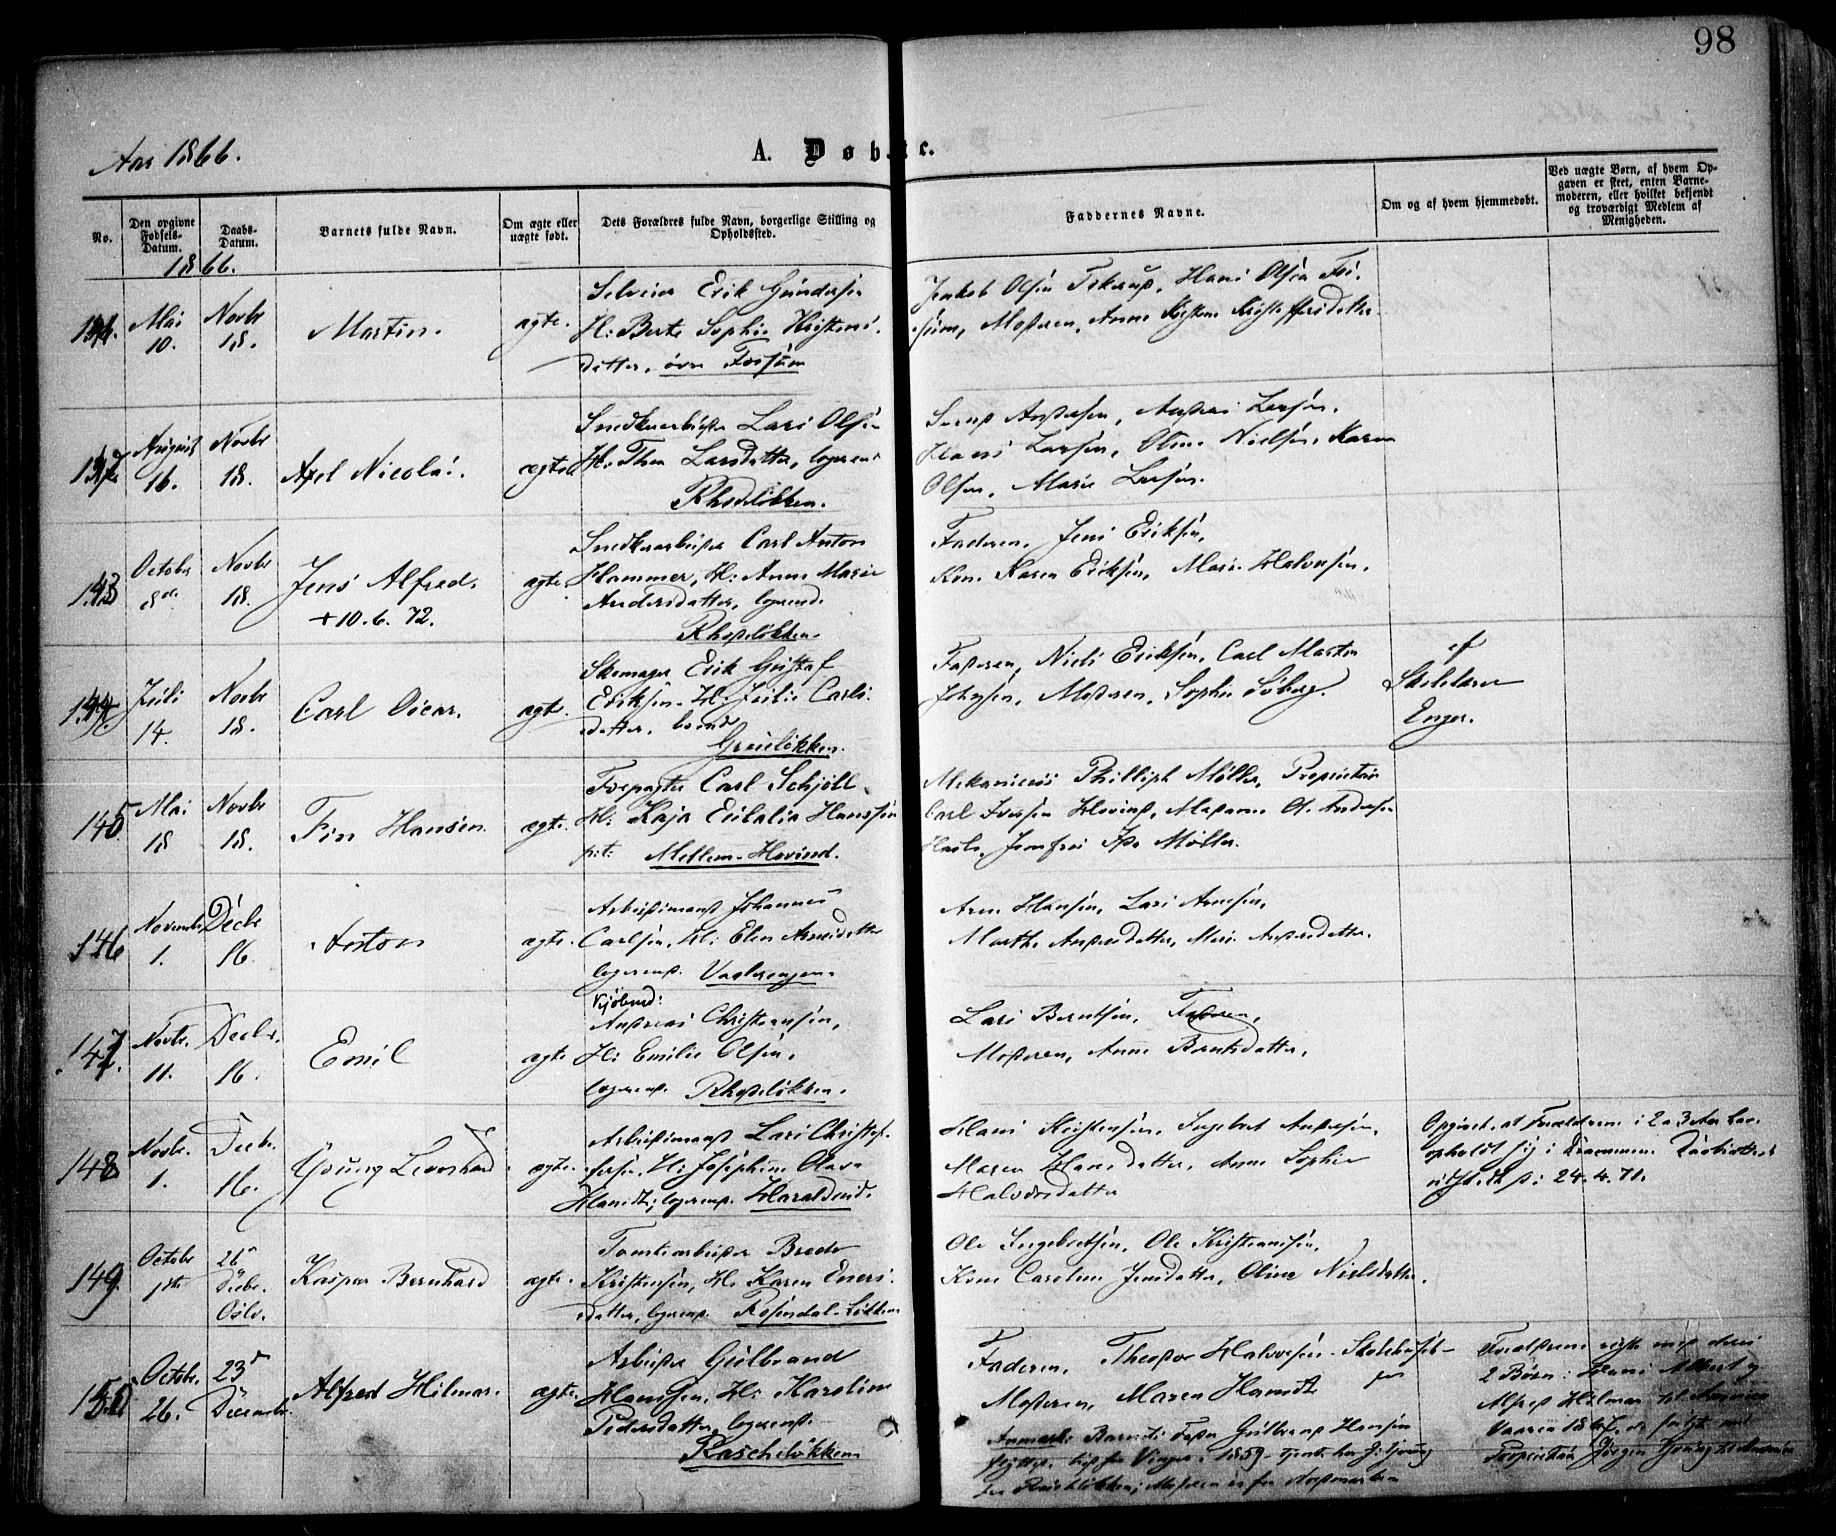 98
Aar 1866.
A. Døbte.
No.
Den opgivne Fødsels-Datum.
Daabs-Datum.
Barnets fulde Navn.
Om ægte eller uægte født.
Dets Forældres fulde Navn, borgerlige Stilling og Opholdssted.
Faddernes Navne.
Om og af hvem hjemmedøbt.
Ved uægte Børn, af hvem Opgaven er skeet, enten Barnemoderen, eller hvilket bekjendt og troværdigt Medlem af Menigheden.
1866.
Mai 10.
Novbr 18.
Martin.
ægte.
Selveier Erik Gundersen
H: Berte Sophie Kristens-
datter, øvre Fossum
Jakob Olsen Hans Olsen Fos-
sum, Moderen, Anne Kirstine Kristoffersdatter.
August 16.
Novbr 18.
Axel Nicolai.
ægte
Snedkerarbeider Lars Olsen
H: Thea Larsdatter, logerend
Rhodeløkken.
Andersen, Anders Larsen,
Hans Larsen, Oline Nielsen, Karen
Olsen, Marie Larsen.
143
October 8de
Novbr 18.
Jens Alfred.
+10.6.72.
ægte.
Snedkerarbeider Carl Anton
Hammer, H: Anne Marie
Andersdatter, logerend.
Rhodeløkken
Faderen, Jens Eriksen,
Kone Karen Eriksen, Marie Halvorsen.
144
Juli 14.
Novbr 18.
Carl Oscar.
ægte.
Skomager Erik Gustaf
Eriksen. H: Julie Carls-
datter, boende
Grünløkken.
Faderen, Niels Eriksen, Carl Martin
Johnsen, Moderen, Sophie Söberg.
af
Skolelærer
Enger.
145
Mai 18
Novbr 18.
Fin Hansen
ægte.
Forpagter Carl Schjöll
H: Kaja Eulalia Hanssen
Mellem-Hovind.
Mekanicus Phillip Møller, Proprietær
Carl Iversen Hovind, Madame A. Andersen
Jomfru Ida Møller.
146
November 1.
Decbr 16.
Anton
ægte.
Arbeidsmand Johannes
Carlsen, H: Elen Arnesdatter
logerend. Vaalerengen.
Arne Hansen, Lars Arnesen,
Marthe Andersdatter, Marie Andersdatter.
147.
Novbr. 11.
Decbr. 16.
Emil
ægte
Kjøbmd:
Andreas Christiansen,
H: Emilie Olsen.
logerend. Rhodeløkken.
Lars Berntsen, Faderen,
Moderen, Anne Berntsdatter.
148
Novbr. 1.
Decbr. 16.
Georg Leonhard
ægte
Arbeidsmand Lars Christof-
fersen, H: Josephine Olava
Hansdt; logerend. Haraldrud.
Hans Kristensen, Ingebret Andersen,
Maren Hansdatter, Anne Sophie
Halvorsdatter
Opgivet, at Forældrene i 2 a 3 Aar har
opholdt sig i Drammen.
24.4.71.
149.
October 1ste
26de Decbr. Oslo.
Kaspar Bernhard
ægte.
Tomtearbeider Brede
Kristensen, H: Karen Eners-
datter, logerend. Rosendal-Løkken
Ole Ingebretsen, Ole Kristiansen,
Kone Caroline Jensdatter, Oline Nielsdatter.
150
Octobr. 26.
23de December.
Alfred Hilmar.
ægte.
Arbeider Gulbrand
Hanssen, H: Karoline
Pedersdatter, logerend
Raschløkken
Faderen, Theodor Halvorsen
Moderen, Maren Hansdt
Anmærk: Barnets Fader Gulbrand Hansen
flyttede hid fra Vinger i 1859
Forældrene med deres
2 Børn: Hans Albert og
Alfred Hilmar til Amerika
Vaaren 1867,
Proprietær Jørgen Young